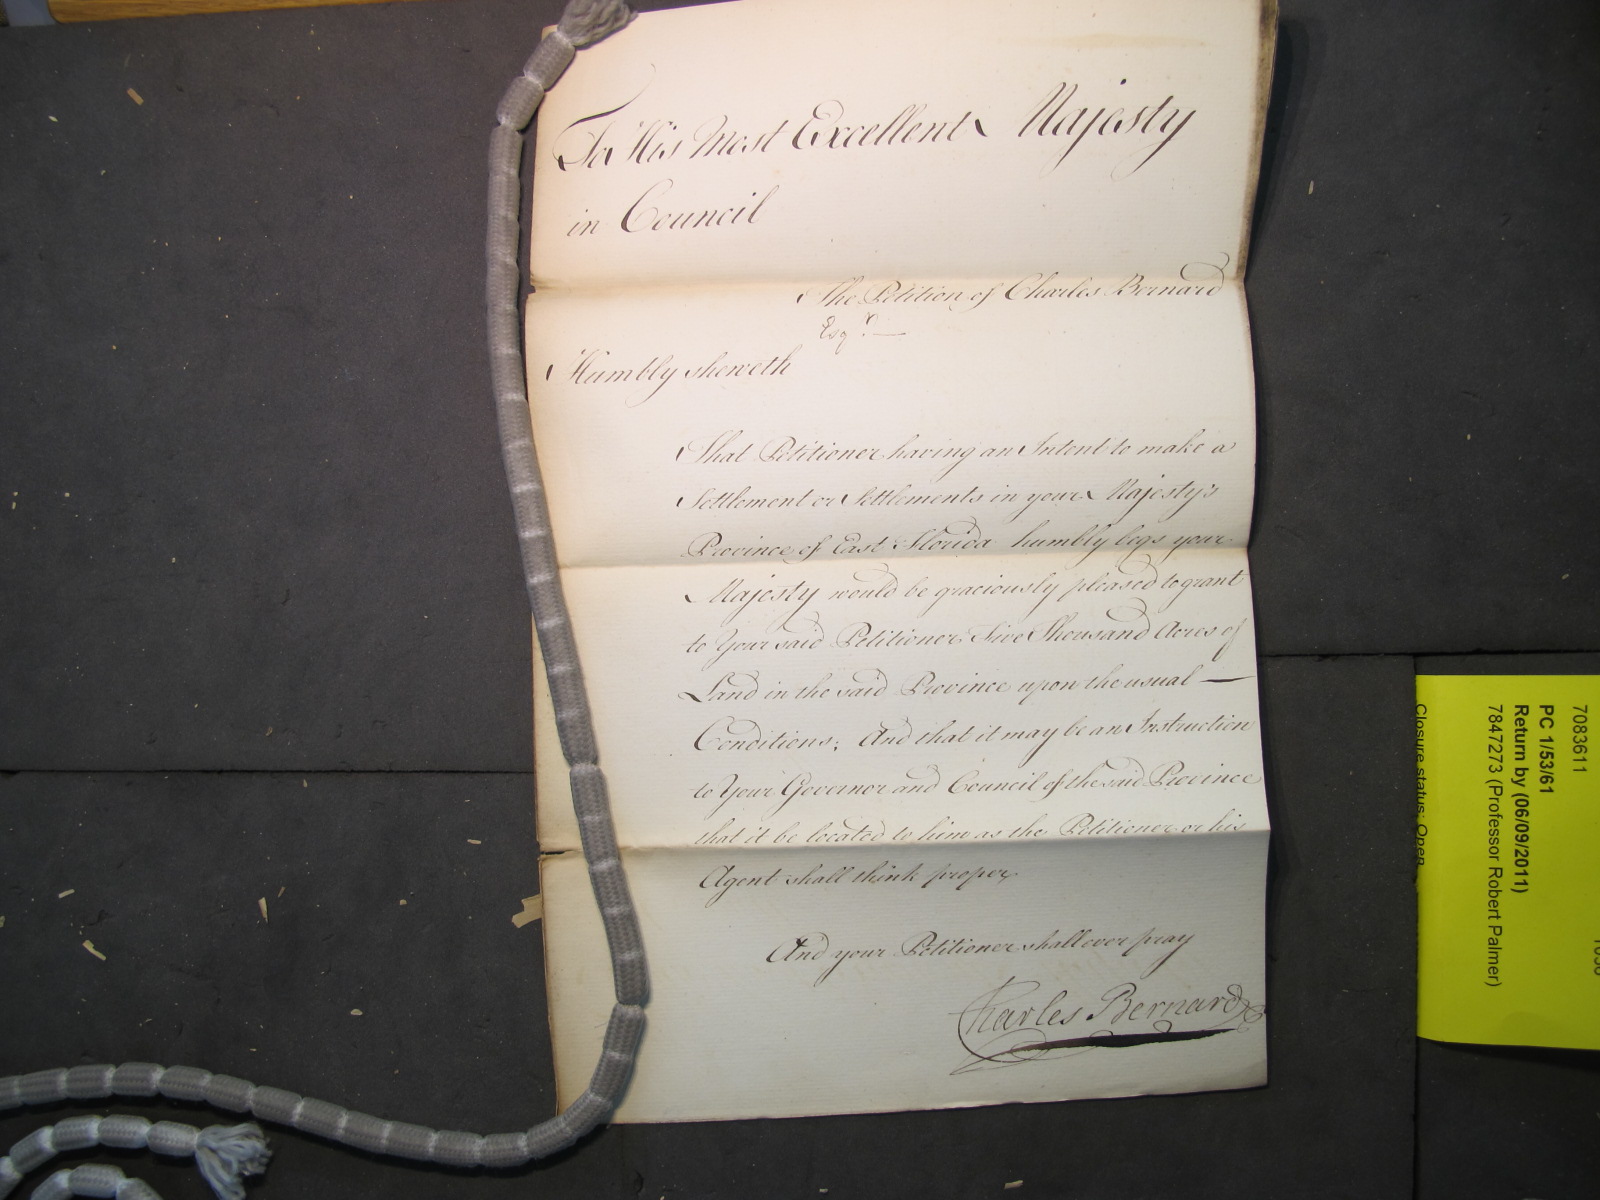 To His Most Excellent Majesty
in Council
The Petition of Charles Bernard
Esqr.
Humbly sheweth
That Petitioner having an Intent to make a
Settlement or Settlements in your Majesty's
Province of East Florida humbly begs your
Majesty would be graciously pleased to grant
to Your said Petitioner Five Thousand Acres of
Land in the said Province upon the usual —
Conditions; And that it may be an Instruction
to Your Governor and Council of the said Province
that it be located to him as the Petitioner or his
Agent shall think proper.
And your Petitioner shall ever pray
Charles Bernard
7083611
PC 1/53/61
Return by (06/09/2011)
7847273 (Professor Robert Palmer)
Closure status: Open